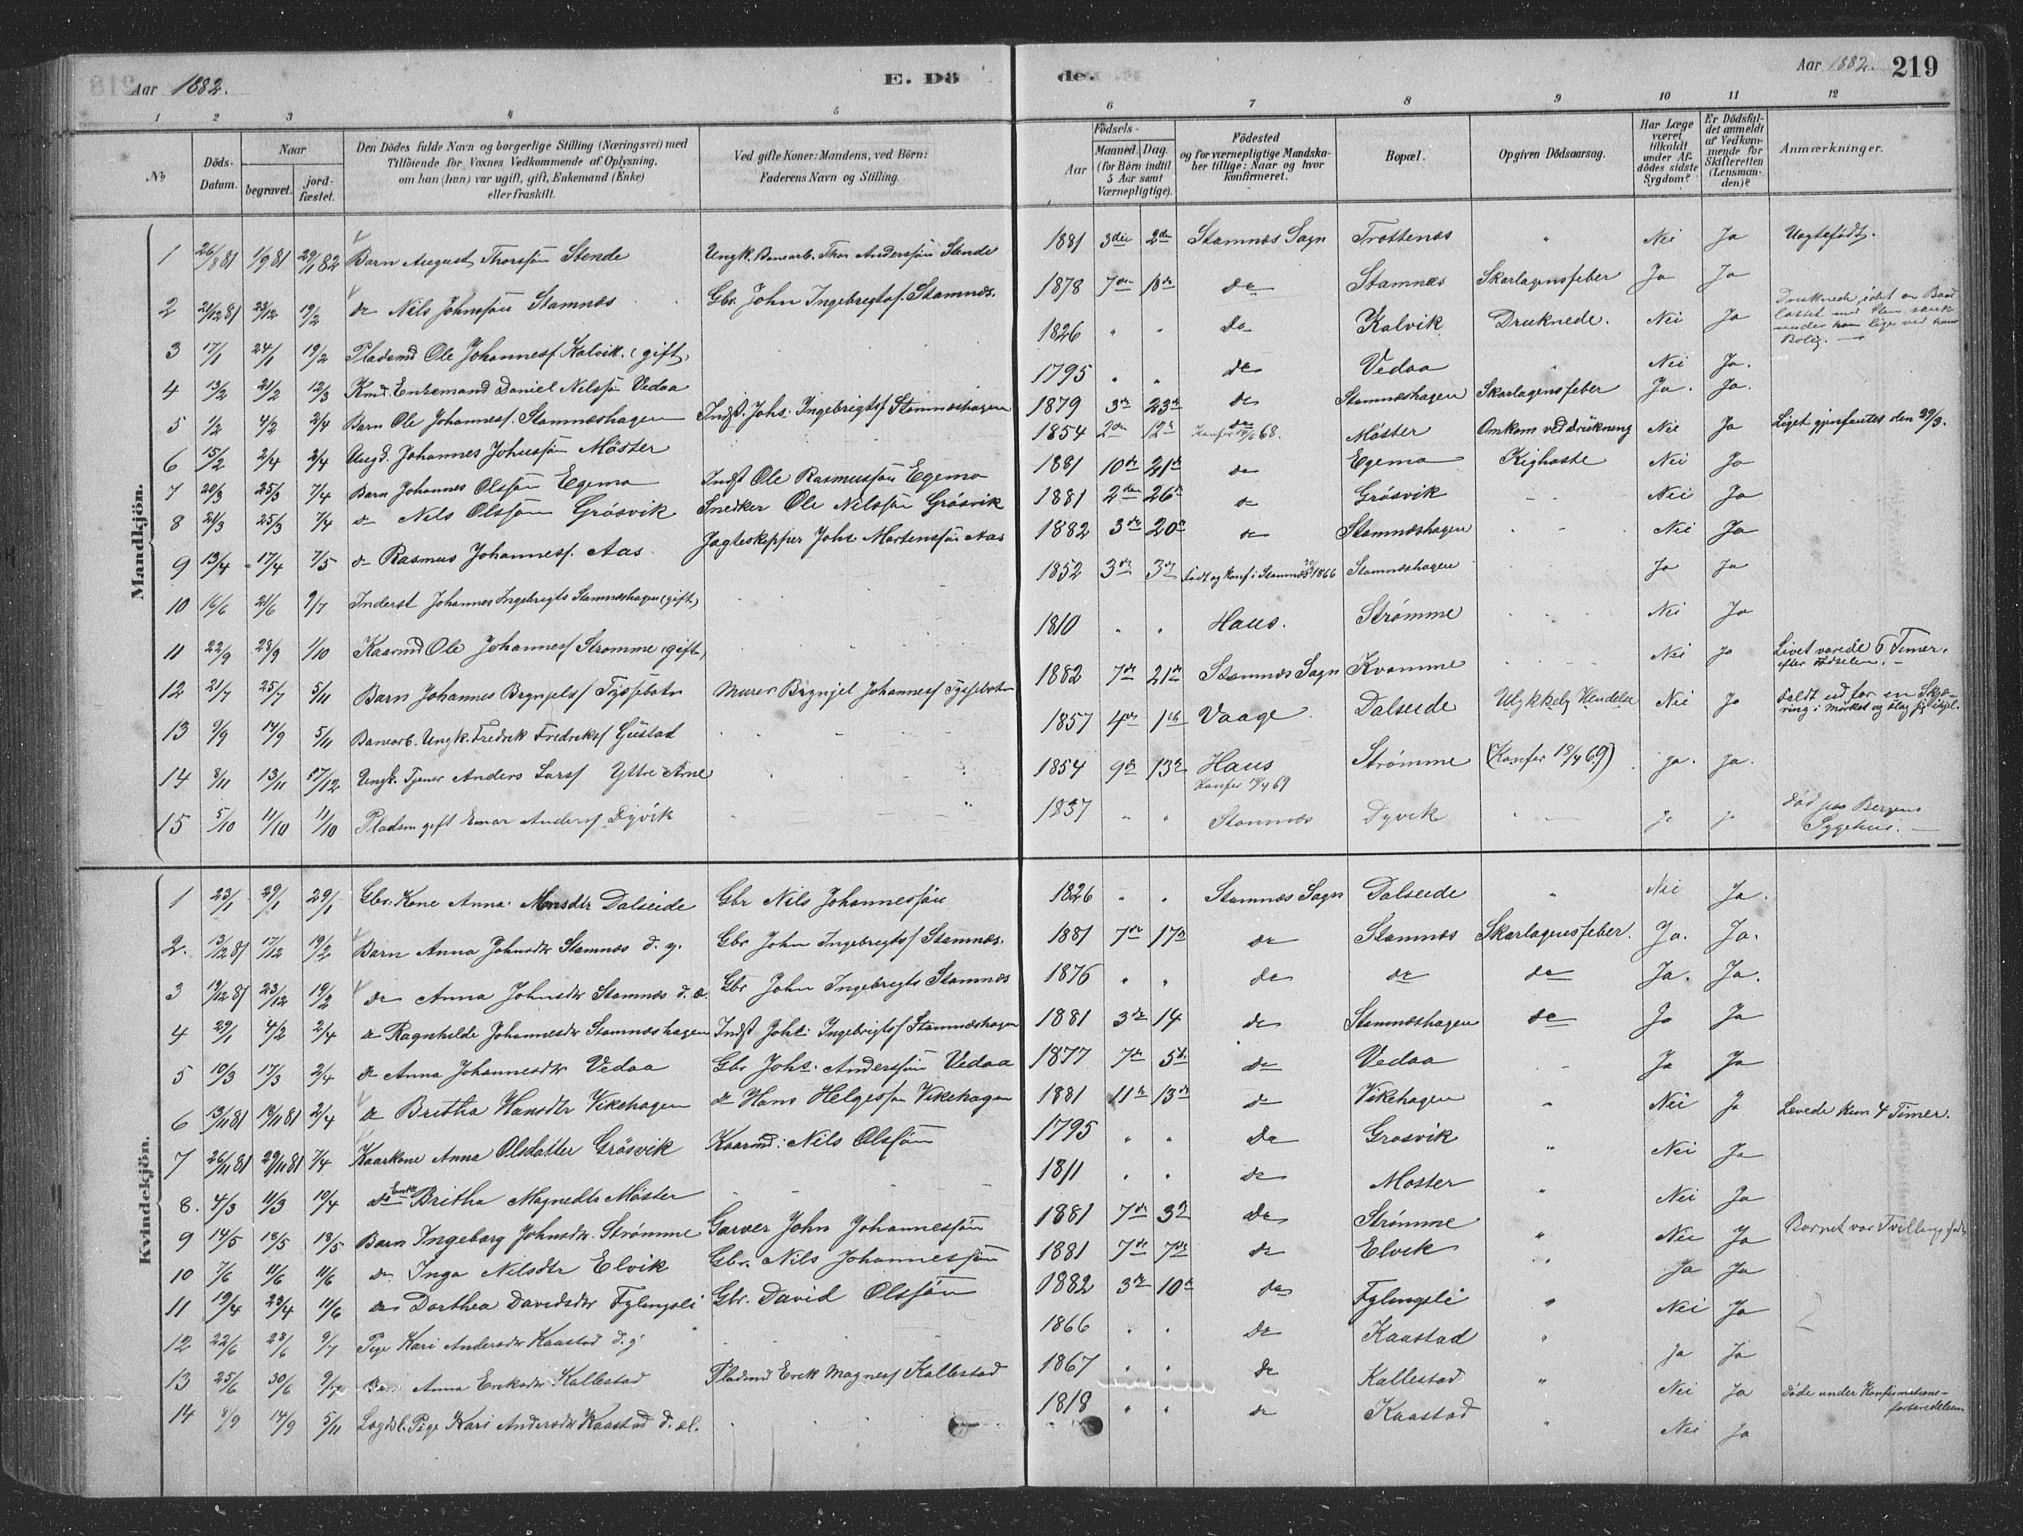 Aar 1882.
E. Dö
de.
Aar 1882.
219
1 2 3 4 5 6 7 8 9 10 11 12
№
Döds-Datum.
Naar
begravet.
jordfæstet.
Den Dödes fulde Navn og borgerlige Stilling (Næringsvei) med
Tilföiende for Voxnes Vedkommende af Oplysning,
om han (hun) var ugift, gift, Enkemand (Enke)
eller fraskilt.
Ved gifte Koner: Mandens, ved Börn:
Faderens Navn og Stilling.
Födsels-
Aar
Maaned. Dag.
(for Börn indtil
5 Aar samt
Værnepligtige).
Födested
og for værnepligtige Mandska-
ber tillige: Naar og hvor
konfirmeret.
Bopæl.
Opgiven Dödsaarsag.
Har Læge
været
tilkaldt
under Af-
dödes sidste
Sygdom?
Er Dödsfal-
det anmeldt
af Vedkom-
mende for
Skifteretten
(Lensman-
den)?
Anmærkninger.
Mandkjön.
1 26/8 81 1/9 81 29/1 82 Barn August Thorssön Stende Ungk. Banearb. Thor Anderssön Stende 1881 3die 2den Stamnæs Sogn Trottenæs " Nei Ja Uægtefödt.
2 21/12 81 23/12 19/2 do Nils Johnssön Stamnæs Gbr. John Ingebrigtsf. Stamnæs. 1878 7de 18de do Stamnæs Skarlagensfeber Ja Ja
3 17/1 24/1 19/2 Pladsmd Ole Johannesf Kalvik. (gift) 1826 " " do Kalvik Druknede. Nei Ja Druknede, idet en Baad lastet med Sten, sank under ham lige ved hans Bolig.
4 13/2 21/2 12/3 Kmd. Enkemand Daniel Nilssön Vedaa 1795 " " do Vedaa " Nei Ja.
5 1/2 4/2 2/4 Barn Ole Johannesf. Stamnæshagen Indst. Johs. Ingebrigtsf Stamnæshagen 1879 3de 23de do Stamnæshagen Skarlagensfeber Ja. Ja.
6 15/2 2/4 2/4 Ungd. Johannes Johnssön Möster 1854 2den 12te do Konfir 68. Möster Omkom ved drukning Nei Ja Liget gjenfantes den 29/3.
7 20/3 25/3 7/4 Barn Johannes Olssön Egemo Indst Ole Rasmussön Egemo 1881 10de 21de do Egemo Kighoste Nei Ja
8 21/3 25/3 7/4 do Nils Olssön Grösvik Snedker Ole Nilssön Grösvik 1881 2den 26de do Grösvik " Nei Ja
9 13/4 17/4 7/5 do Rasmus Johannesf. Aas Jagteskipper Johs Martenssön Aas 1882 3de 20de do Stamnæshagen " Nei Ja
10 16/6 21/6 9/7 Inderst Johannes Ingebrigts Stamnæshagen (gift) 1852 3de 3de födt og Konf i Stamnæs 1866 Stamnæshagen Ja Ja
11 22/9 28/9 1/10 Kaarmd Ole Johannesf Strømme (gift) 1810 " " Haus. Strømme Nei Ja
12 21/7 25/7 5/11 Barn Johannes Brynjelsf Tyssebotn Murer Brynjel Johannesf Tyssebotn 1882 7de 21de Stamnæs Sogn Kvamme Nei Ja Livet varede 6 Timer, efter Födselen.
13 9/9 14/9 5/11 Banearb. Ungk. Fredrik Fredriksf Gustad 1857 4de 1ste Vaage Dalseide Ulykkelig Hendelse Nei Ja Faldt ud for en Skjæring i Mörket og slog sig ihjel
14 8/11 13/11 17/12 Ungk. Tjener Anders Larsf Yttre Arne 1854 9de 13de Haus Konfir 18/4 69 Strømme (Konfir 18/4 69) ja. ja.
15 5/10 11/10 11/10 Pladsm gift Einar Andersf Dyvik 1837 " " Stamnæs Dyvik ja ja Död paa Bergens Sygehus.
Kvindekjön.
1 23/1 29/1 29/1 Gbr. Kone Anna Monsdtr Dalseide Gbr Nils Johannessön 1826 " " Stamnæs Sogn Dalseide " Nei Ja.
2. 13/12 81 17/12 19/2 Barn Anna Johnsdtr Stamnæs d. y. Gbr John Ingebrigtsf Stamnæs. 1881 7de 17de do Stamnæs Skarlagensfeber. Ja. Ja.
3 19/12 81 23/12 19/2 do Anna Johnsdtr Stamnæs d. æ. Gbr John Ingebrigts Stamnæs 1876 " " do do do Ja. Ja.
4 29/1 4/2 2/4 do Ragnhilde Johannesdtr Stamnæshagen Indst Johs Ingebrigtsf Stamnæshagen 1881 3de 14 do Stamnæshagen do Ja Ja
5 10/3 17/3 2/4 do Anna Johannesdtr Vedaa Gbr Johs. Anderssön Vedaa 1877 7de 5te do Vedaa Ja Ja
6 13/11 81 18/11 81 2/4 do Britha Hansdtr Vikehagen do Hans Helgessön Vikehagen 1881 11te 13de do Vikehagen " Nei Ja Levede kun 4 Timer.
7 26/11 81 29/11 81 7/4 Kaarkone Anna Olsdatter Grösvik Kaarmd: Nils Olssön 1795 " " do Grosvik " Nei Ja
8. 4/3 11/3 10/4 do Enke Britha Magnedtr Möster 1811 " " do Moster " Nei Ja
9 14/5 18/5 18/5 Barn Ingeborg Johnsdtr. Strømme Garver John Johannessön 1881 7de 3de do Strømme " Nei Ja Barnet var Tvilling
10 7/6 11/6 11/6 do Inga Nilsdtr Elvik Gbr. Nils Johannessön 1881 7de 7de do Elvik " Ja Ja
11 19/4 23/4 11/6 do Dorthea Davidsdtr Fylingsli Gbr. David Olssön 1882 3de 10de do Fylingsli " Nei Ja
12 22/6 28/6 9/7 Pige Kari Andersdtr Kaastad d. y 1866 " " do Kaastad " Ja Ja
13 25/6 30/6 9/7 Anna Eriksdtr Kallestad Pladsmd Erik Magnesf Kallestad 1867 " " do Kallestad " Nei Ja döde under Konfirmations-forberedelsen
14 8/9 14/9 5/11 Lægdsl. Pige Kari Andersdtr Kaastad d. æl. 1818 " " do Kaastad " Nei Ja